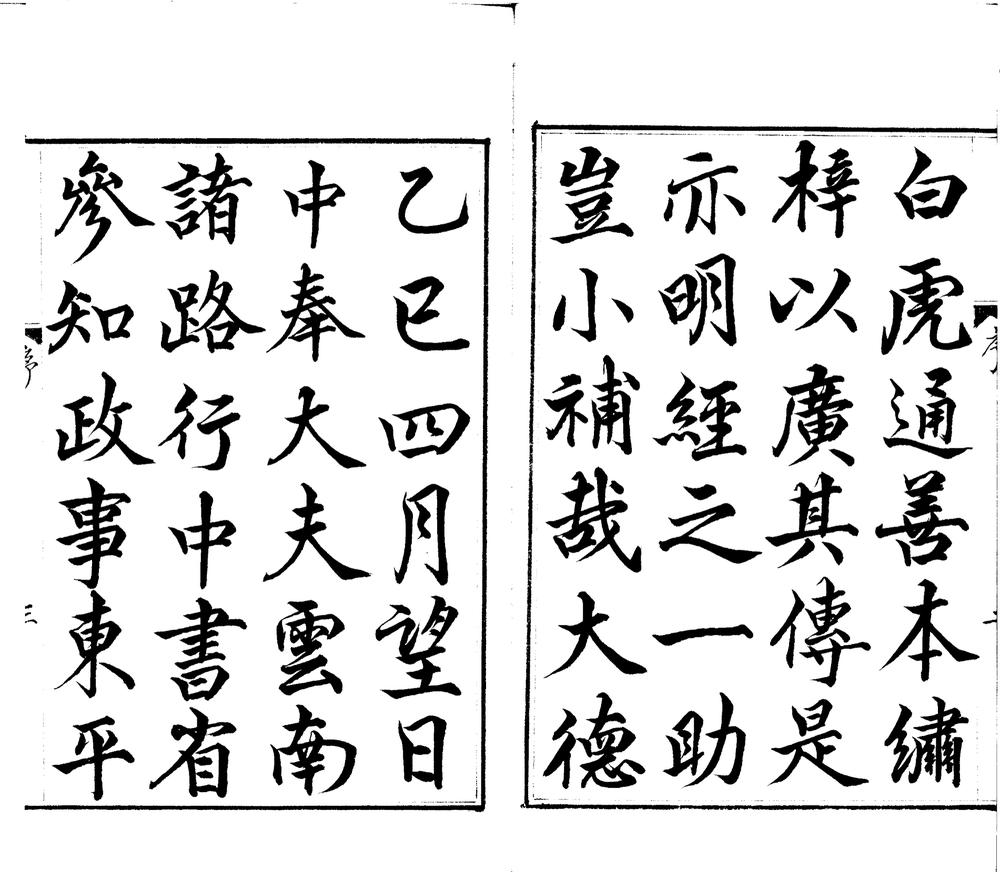 白虎通善本繡
梓以廣其傳是
亦明經之一助
豈小補哉大德
乙巳四月望日
中奉大夫雲南
諸路行中書省
參知政事東平
序
三